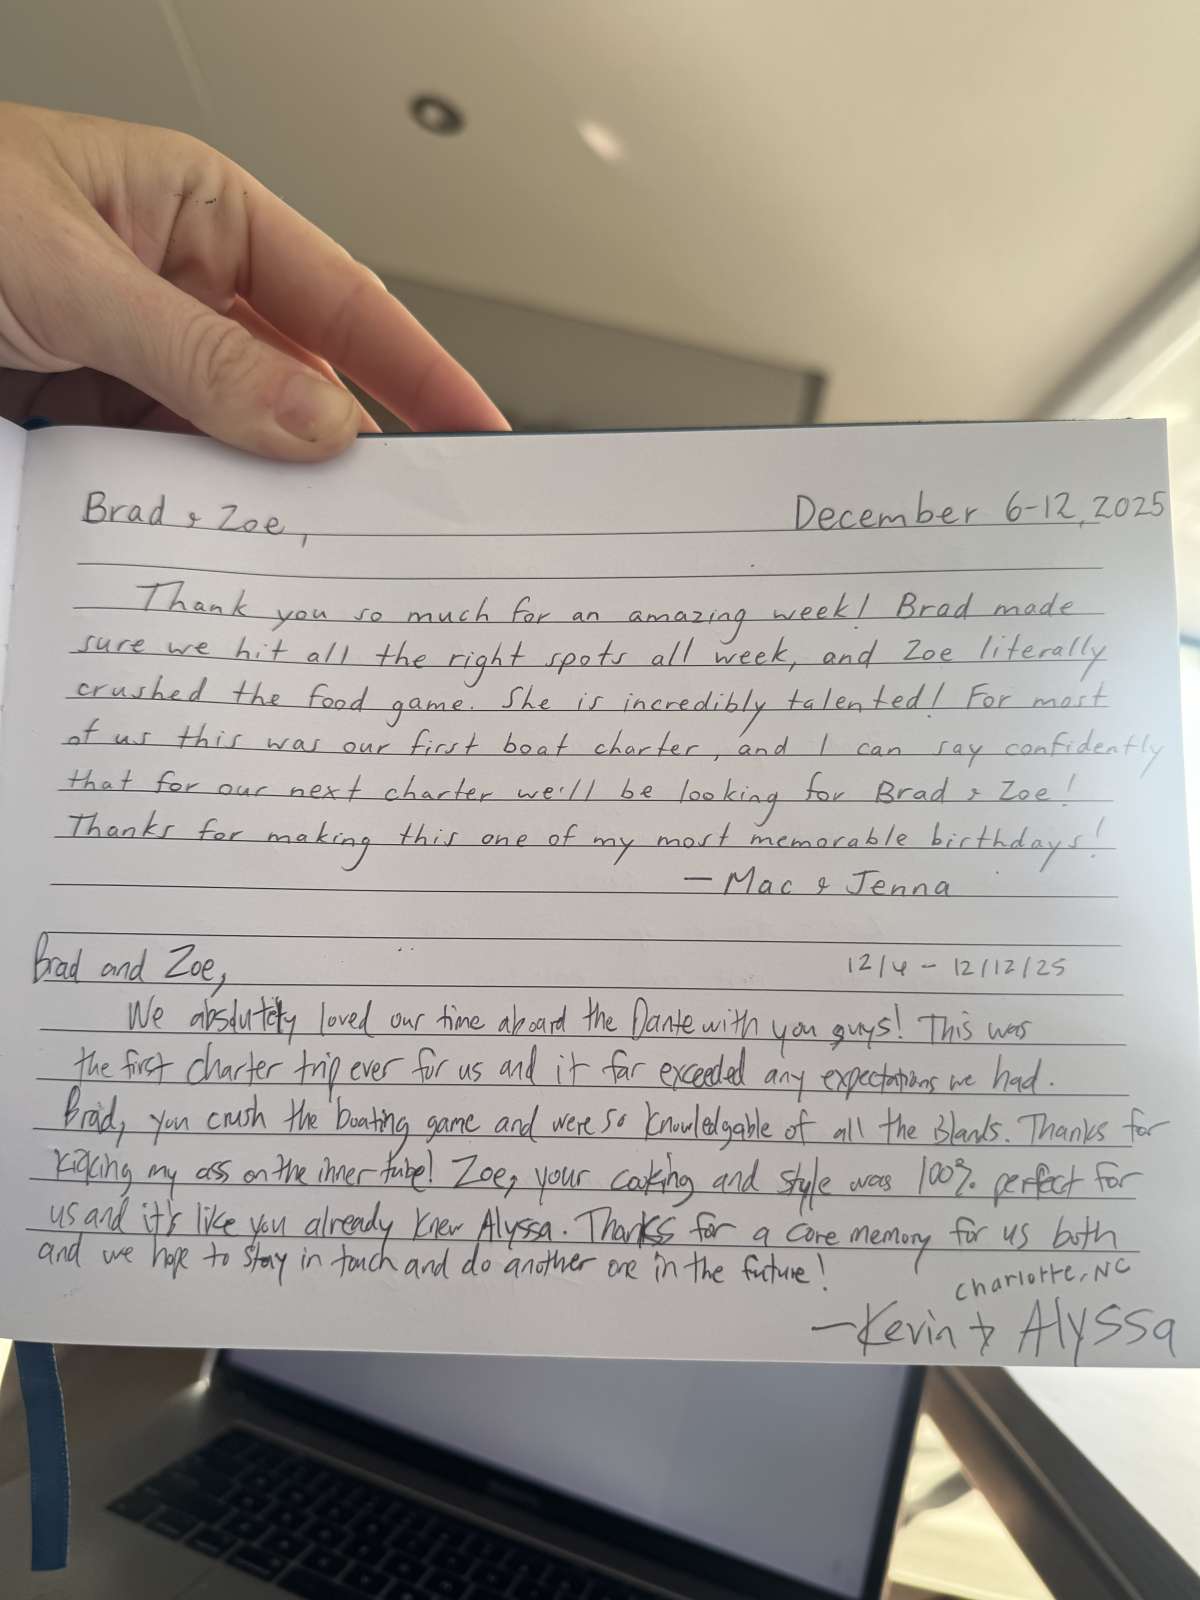 Brad & Zoe,
December 6-12, 2025
Thank you so much for an amazing week! Brad made
sure we hit all the right spots all week, and Zoe literally
crushed the food game. She is incredibly talented! For most
of us this was our first boat charter, and I can say confidently
that for our next charter we'll be looking for Brad & Zoe!
Thanks for making this one of my most memorable birthdays!
— Mac & Jenna
Brad and Zoe,
12/6 - 12/12/25
We absolutely loved our time aboard the Dante with you guys! This was
the first charter trip ever for us and it far exceeded any expectations we had.
Brad, you crush the boating game and were so knowledgable of all the Islands. Thanks for
kicking my ass on the inner tube! Zoe, your cooking and style was 100% perfect for
us and it's like you already knew Alyssa. Thanks for a core memory for us both
and we hope to stay in touch and do another one in the future!
Charlotte, NC
— Kevin & Alyssa